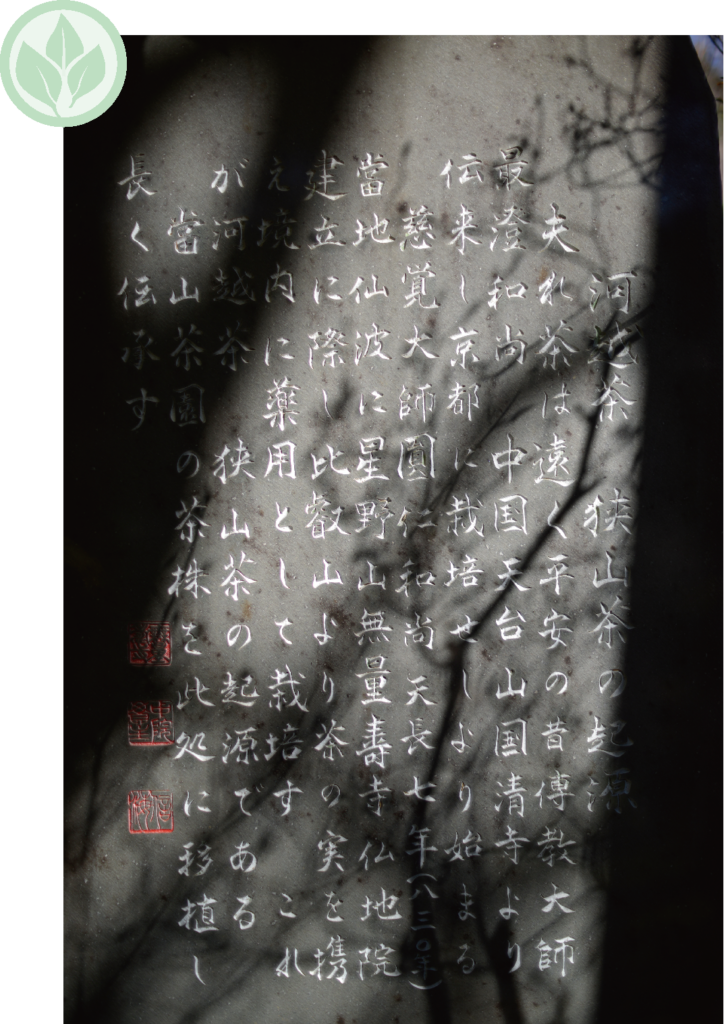 河越茶 狭山茶の起源
夫れ茶は遠く平安の昔傳教大師
最澄和尚 中国天台山国清寺より
伝来し京都に栽培せしより始まる
慈覚大師圓仁和尚天長七年(八三〇年)
當地仙波に星野山無量壽寺仏地院
建立に際し比叡山より茶の実を携
え境内に薬用として栽培す これ
が河越茶 狭山茶の起源である
當山茶園の茶株を此処に移植し
長く伝承す